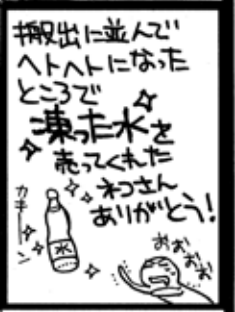 搬出に並んで
ヘトヘトになった
ところで
凍った水を
売ってくれた
ネコさん
ありがとう!
カキーン
水
おぉぉぉ